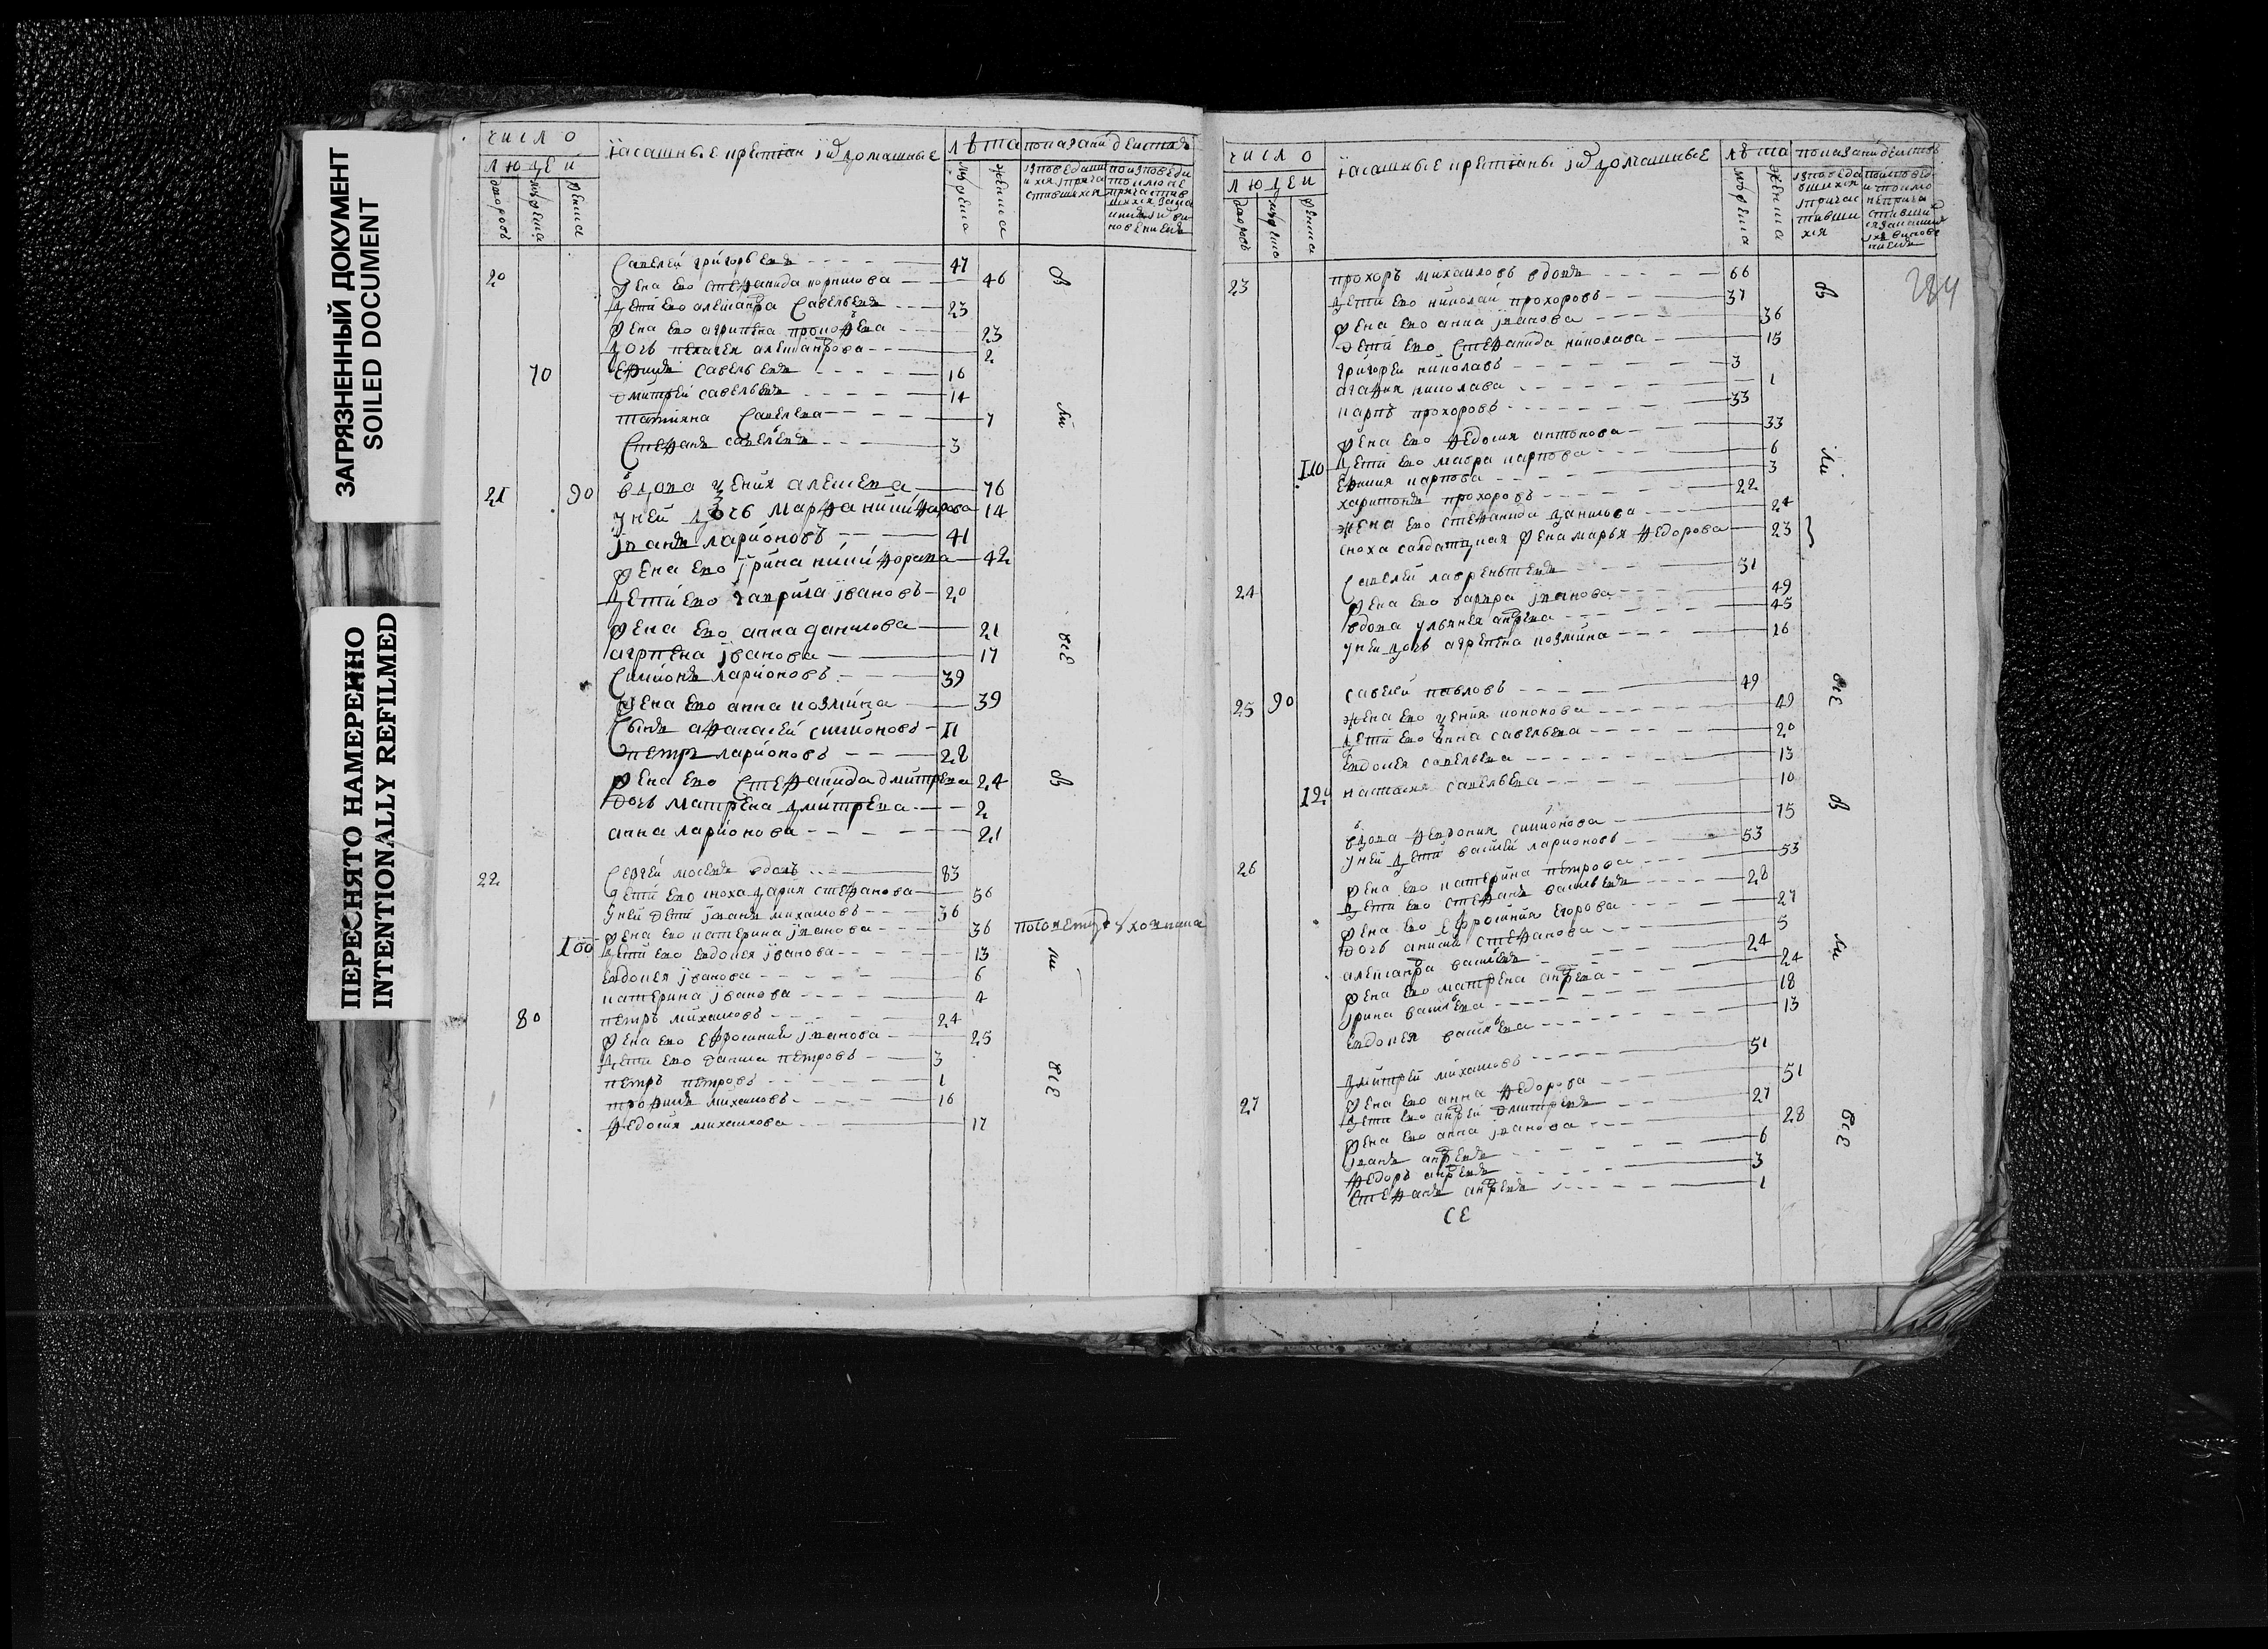 ЗАГРЯЗНЕННЫЙ ДОКУМЕНТ
SOILED DOCUMENT
ПЕРЕСНЯТО НАМЕРЕННО
INTENTIONALLY REFILMED
число
людей
дворовъ
мужеска
женска
ꙗсашные крестьян и их домашные
лѣта
мужеска
женска
показани действа
20 Савелей григорьевъ 47
жена ево стефанида корнилова 46
дети ево алеѯандра Савельевъ 23
жена ево агрипена прокофьева 23
дочь пелагея алеѯандрова 2
70 Ефимъ савельевъ 16
дмитрей савельевъ 14
татияна Савелева 7
Стефанъ савельевъ 3
21 90 вдова ѯения алеѯева 76
у ней дочь марфа никифорова 14
иванъ ларионовъ 41
жена ево ирина никифорава 42
дети ево гаврила ивановъ 20
жена ево анна данилова 21
агрпена иванова 17
Симионъ ларионовъ 39
жена ево анна козмина 39
Сынъ афанасей симионовъ 11
петръ ларионовъ 28
жена ево Стефанида дмитрева 24
дочь матрена дмитрева 2
анна ларионова 21
22 Сергей мосевъ вдовъ 83
дети ево сноха дария стефанова 56
у ней дети иванъ михаиловъ 36
жена ево катерина иванова 36
100 дети ево евдокея иванова 13
евдокея иванова 6
катерина иванова 4
80 петръ михаиловъ 24
жена ево ефросиния иванова 25
дети ево данила петровъ 3
петръ петровъ 1
трофимъ михаиловъ 16
федосия михаилова 17
В
ли
все
В
ли
все
число
людей
дворовъ
мужеска
женска
ꙗсашные крестьяны и их домашные
лѣта
мужеска
женска
показани действ
284
23 прохоръ михаиловъ вдовъ 66
дети ево николай прохоровъ 37
жена ево анна иванова 36
дети ево Стефанида николава 15
григорей николавъ 3
агафия николава 1
карпъ прохоровъ 33
жена ево федосия антонова 33
110 дети ево мавра карпова 6
Евгения карпова 3
харитонъ прохоровъ 22
жена ево стефанида данилова 24
сноха салдатцкая жена марья федорова 23
24 Савелей лаврентевъ 51
жена ево варвра иванова 49
вдова ульянея андрева 45
у ней дочь агрепена козмина 16
25 90 савелей павловъ 49
жена ево ѯения кононова 49
дети ево анна савельева 20
Евдокея савельева 13
124 настасия савельева 10
26 вдова февдония симионова 75
у ней дети васией ларионовъ 53
жена ево катерина петрова 53
дети ево стефанъ васильевъ 28
жена ево ефросиния егорова 27
дочь анисия стефанова 5
алеѯандра васильевъ 24
жена ево матрена андрева 24
ирина васильева 18
евдокея васильева 13
27 дмитрей михаиловъ 51
жена ево анна федорова 51
дети ево андрей дмитревъ 27
жена ево анна иванова 28
иванъ андревъ 6
федоръ андревъ 3
стефанъ андревъ 1
СЕ
В
ли
все
В
ли
все